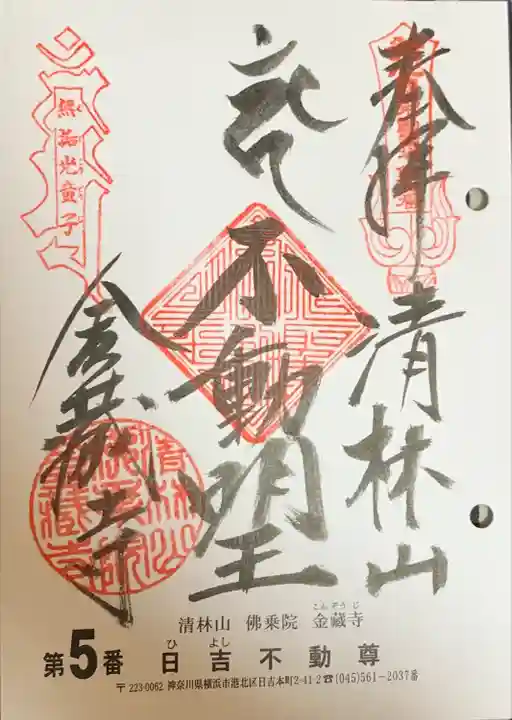 奉拝
清林山
不動明王
金蔵寺
無垢光童子
清林山 佛乗院 金蔵寺
こんぞうじ
第5番 日吉不動尊
ひよし
〒223-0062 神奈川県横浜市港北区日吉本町2-41-2☎(045)561-2037番